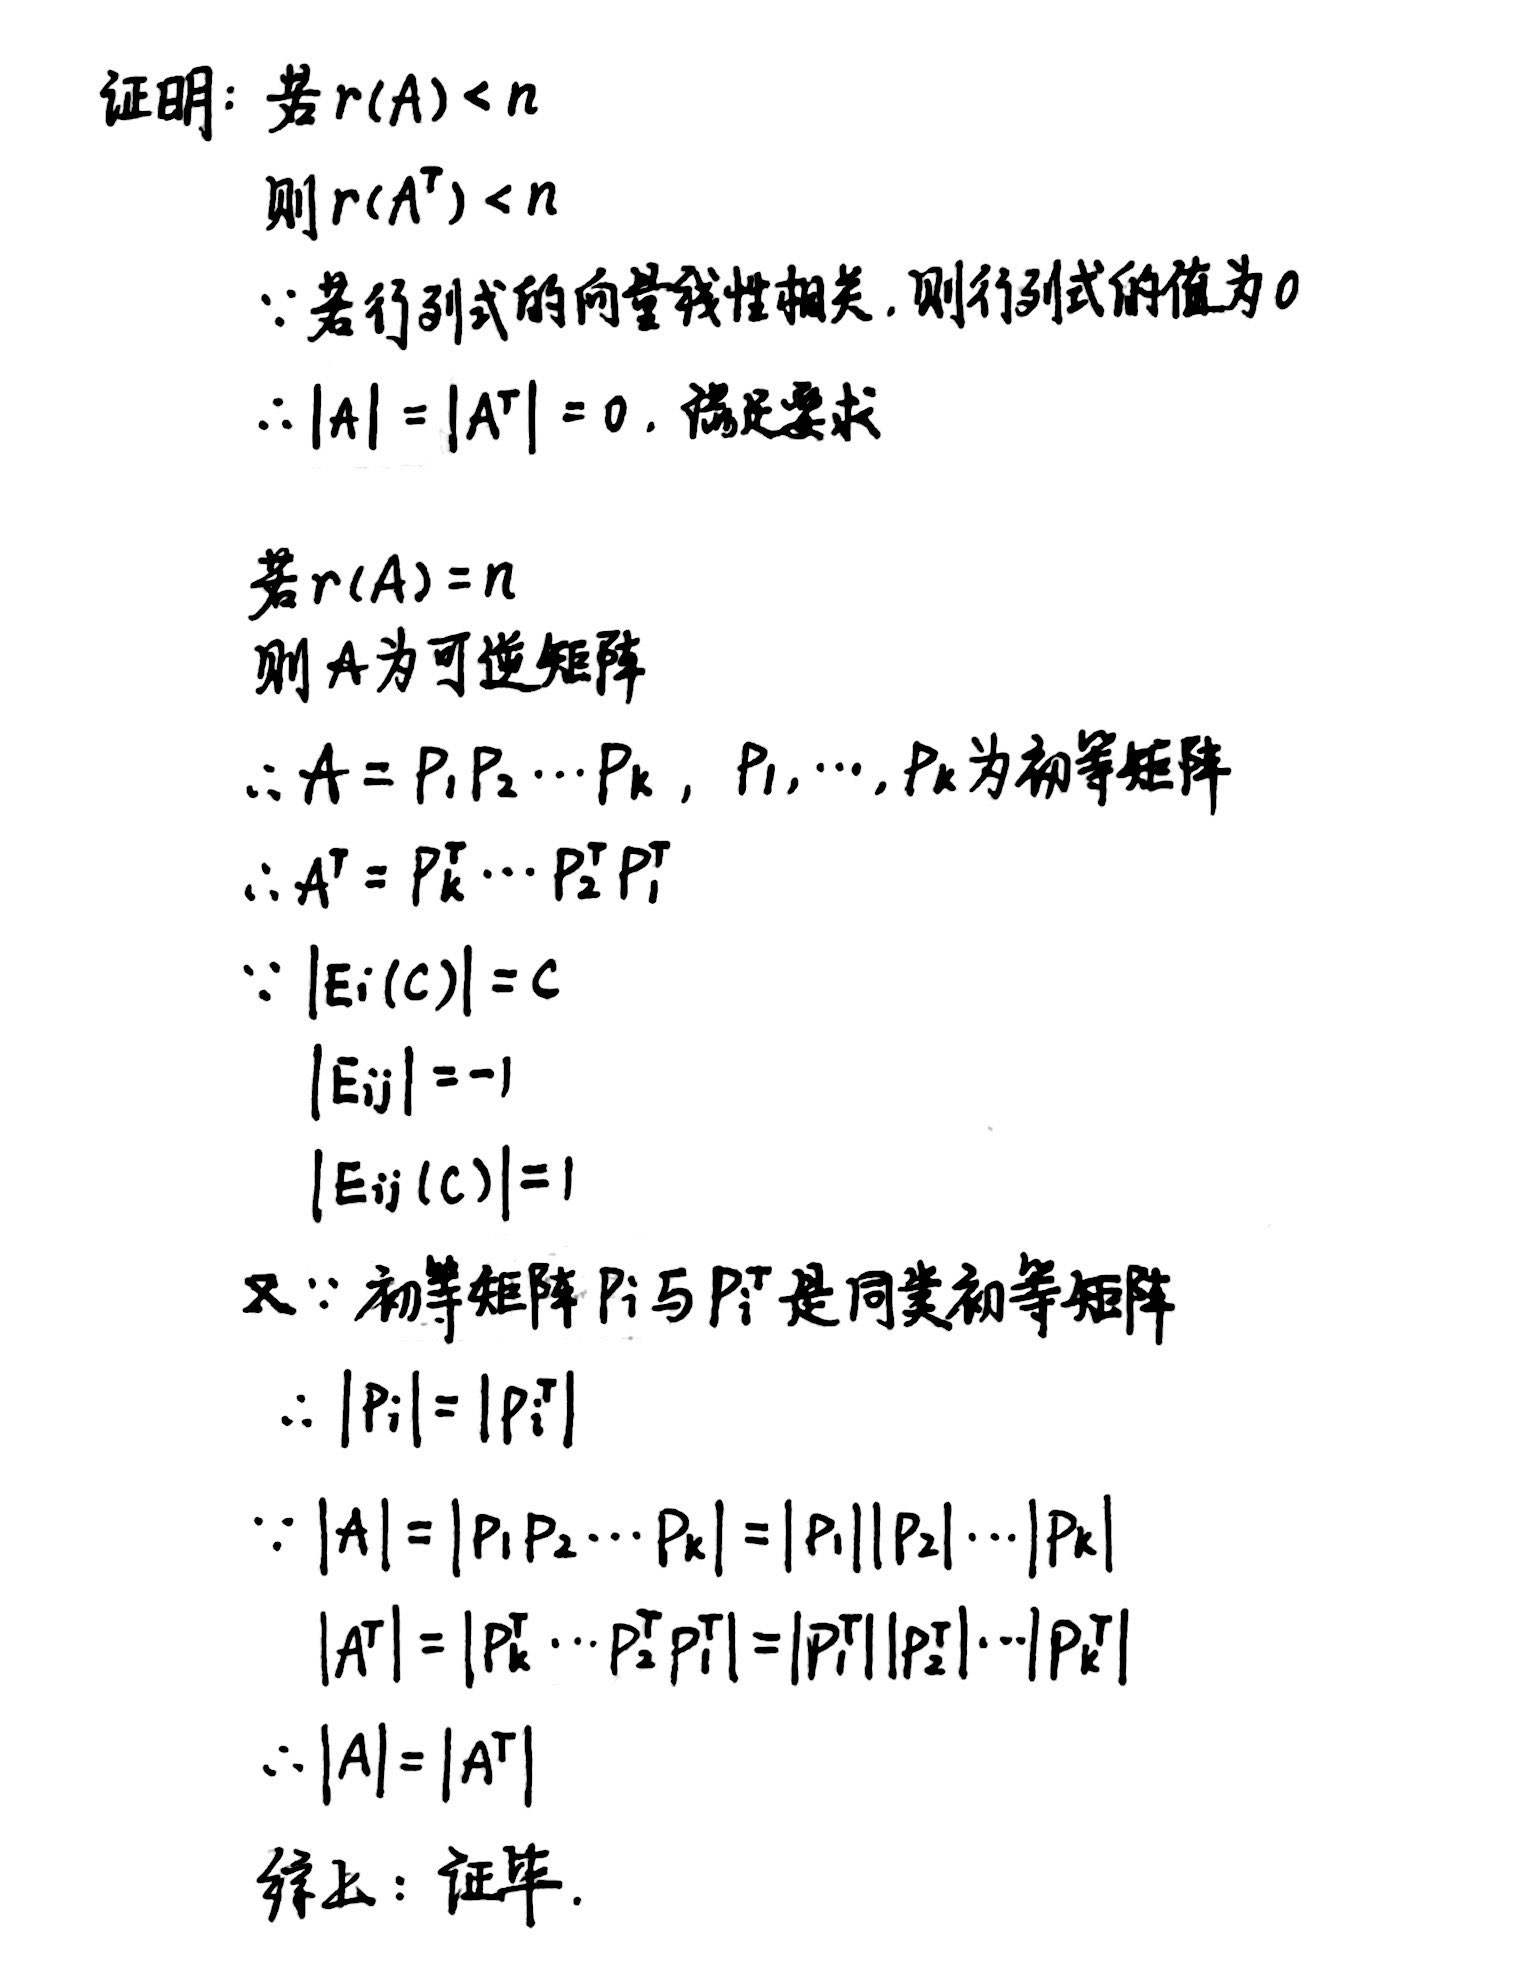 证明：若 r(A) < n
则 r(Aᵀ) < n
∵ 若行列式的向量线性相关，则行列式的值为0
∴ |A| = |Aᵀ| = 0，满足要求
若 r(A) = n
则 A 为可逆矩阵
∴ A = P₁P₂⋯Pₖ，P₁,⋯,Pₖ 为初等矩阵
∴ Aᵀ = Pₖᵀ⋯P₂ᵀP₁ᵀ
∵ |Eᵢ(C)| = C
|Eᵢⱼ| = -1
|Eᵢⱼ(C)| = 1
又∵ 初等矩阵 Pᵢ 与 Pᵢᵀ 是同类初等矩阵
∴ |Pᵢ| = |Pᵢᵀ|
∵ |A| = |P₁P₂⋯Pₖ| = |P₁||P₂|⋯|Pₖ|
|Aᵀ| = |Pₖᵀ⋯P₂ᵀP₁ᵀ| = |P₁ᵀ||P₂ᵀ|⋯|Pₖᵀ|
∴ |A| = |Aᵀ|
综上：证毕.